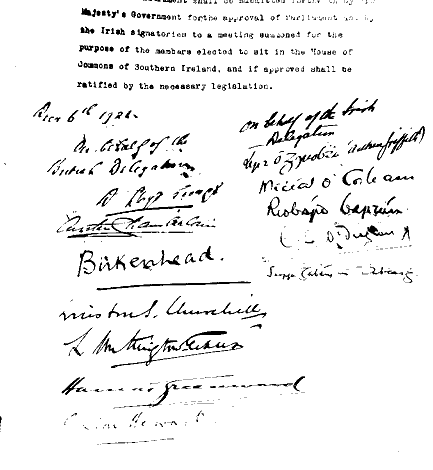 Majesty's Government forthe approval of Parliament and by
the Irish signatories to a meeting summoned for the
purpose of the members elected to sit in the House of
Commons of Southern Ireland, and if approved shall be
ratified by the necessary legislation.
Decr 6th 1921.
On behalf of the
British Delegation
D Lloyd George
Austen Chamberlain
Birkenhead.
Winston S. Churchill
L Worthington Evans
Hamar Greenwood
Gordon Hewart
On behalf of the Irish
Delegation
(Arthur Griffith)
Micheál Ó Coileain
Riobárd Bartún